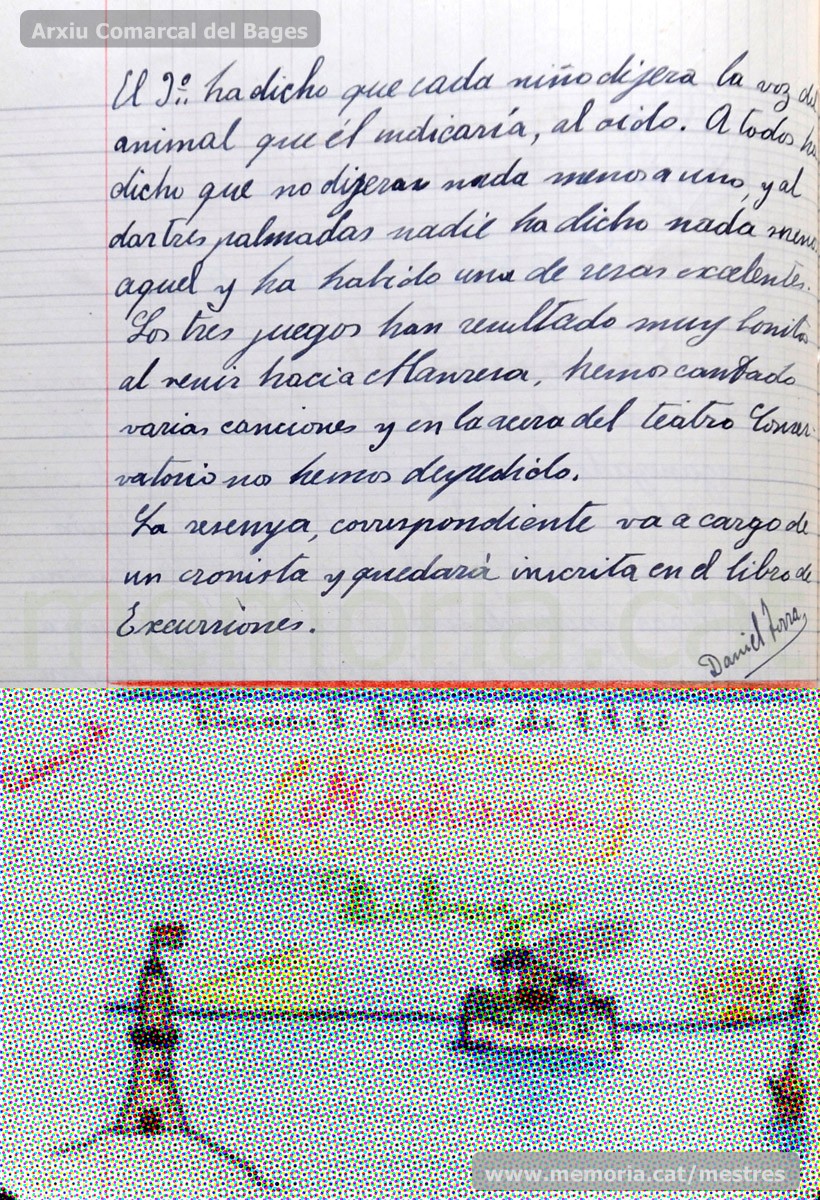 Arxiu Comarcal del Bages
El 3º ha dicho que cada niño dijera la voz del
animal que él indicaría, al oido. A todos ha
dicho que no dijeran nada menos a uno, y al
dar tres palmadas nadie ha dicho nada meno
aquel y ha habido una de resas excelentes.
Los tres juegos han resultado muy bonitos
al venir hacia Manresa, hemos cantado
varias canciones y en la acera del teatro Conser-
vatorio nos hemos despedido.
La resenya, correspondiente va a cargo de
un cronista y quedará inscrita en el libro de
Excursiones.
Daniel Torra
memoria.cat
www.memoria.cat/mestres